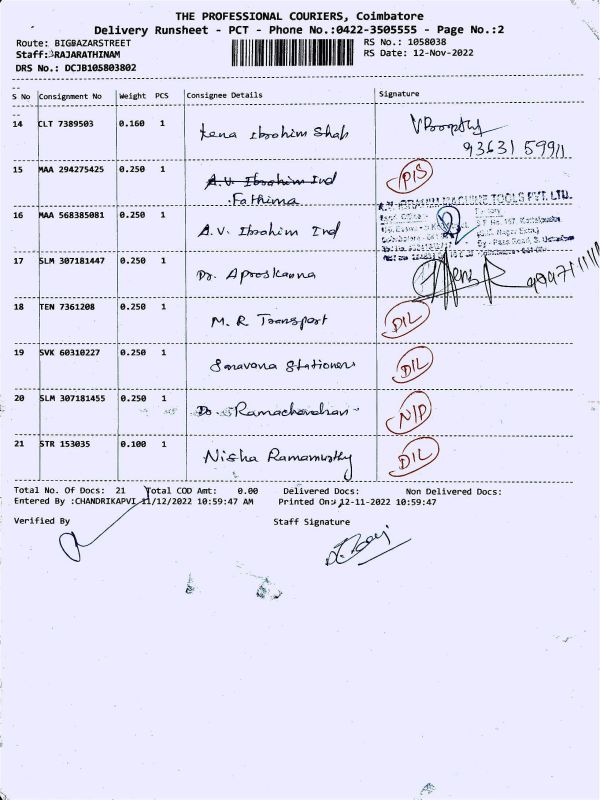 THE PROFESSIONAL COURIERS, Coimbatore
Delivery Runsheet - PCT - Phone No.:0422-3505555 - Page No.:2
Route: BIGBAZARSTREET RS No.: 1058038
Staff: RAJARATHINAM RS Date: 12-Nov-2022
DRS No.: DCJB105803802
S No Consignment No Weight PCS Consignee Details Signature
14 CLT 7389503 0.160 1 Ibrohim Shab
93631 59911
15 MAA 294275425 0.250 1 A.V. Ibrohim Ind
Fathima
16 MAA 568385081 0.250 1 A.V. Ibrohim Ind
MACHINE TOOLS PVT. LTD.
17 SLM 307181447 0.250 1 Dr.
18 TEN 7361208 0.250 1 M. R Transport D/L
19 SVK 60310227 0.250 1 Saravana Stationers D/L
20 SLM 307181455 0.250 1 Ramachandran N/D
21 STR 153035 0.100 1 Nisha Ramamurthy D/L
Total No. Of Docs: 21 Total COD Amt: 0.00 Delivered Docs: Non Delivered Docs:
Entered By :CHANDRIKAPVI 11/12/2022 10:59:47 AM Printed On: 12-11-2022 10:59:47
Verified By Staff Signature